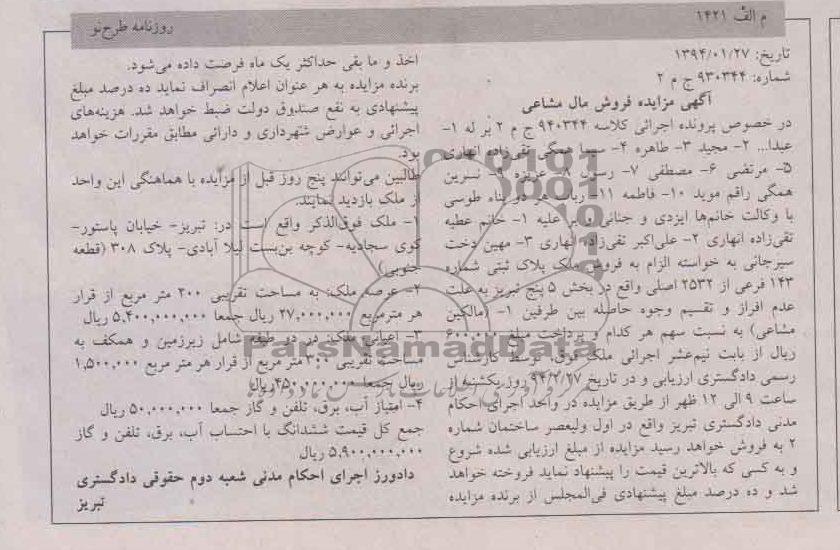 م الف ۱۴۲۱
روزنامه طرح‌نو
تاریخ: ۱۳۹۴/۰۱/۲۷
شماره: ۹۳۰۳۴۴ ج م ۲
آگهی مزایده فروش مال مشاعی
در خصوص پرونده اجرائی کلاسه ۹۴۰۳۴۴ ج م ۲ بر له ۱-
عبدا... ۲- مجید ۳- طاهره ۴- سیما همگی تقی‌زاده انهاری
۵- مرتضی ۶- مصطفی ۷- رسول ۸- عزیزه ۹- نسرین
همگی راقم موید ۱۰- فاطمه ۱۱- رباب هر دو پناه طوسی
با وکالت خانم‌ها ایزدی و جنانی و بر علیه ۱- خانم عطیه
تقی‌زاده انهاری ۲- علی‌اکبر تقی‌زاده انهاری ۳- مهین دخت
سیرجانی به خواسته الزام به فروش ملک پلاک ثبتی شماره
۱۴۳ فرعی از ۲۵۳۲ اصلی واقع در بخش ۵ پنج تبریز به علت
عدم افراز و تقسیم وجوه حاصله بین طرفین ۱- (مالکین
مشاعی) به نسبت سهم هر کدام و پرداخت مبلغ ۶۰۰,۰۰۰
ریال از بابت نیم‌عشر اجرائی ملک فوق، توسط کارشناس
رسمی دادگستری ارزیابی و در تاریخ ۹۴/۲/۲۷ روز یکشنبه از
ساعت ۹ الی ۱۲ ظهر از طریق مزایده در واحد اجرای احکام
مدنی دادگستری تبریز واقع در اول ولیعصر ساختمان شماره
۲ به فروش خواهد رسید مزایده از مبلغ ارزیابی شده شروع
و به کسی که بالاترین قیمت را پیشنهاد نماید فروخته خواهد
شد و ده درصد مبلغ پیشنهادی فی‌المجلس از برنده مزایده
اخذ و ما بقی حداکثر یک ماه فرصت داده می‌شود.
برنده مزایده به هر عنوان اعلام انصراف نماید ده درصد مبلغ
پیشنهادی به نفع صندوق دولت ضبط خواهد شد. هزینه‌های
اجرائی و عوارض شهرداری و دارائی مطابق مقررات خواهد
بود.
طالبین می‌توانند پنج روز قبل از مزایده با هماهنگی این واحد
از ملک بازدید نمایند.
۱- ملک فوق‌الذکر واقع است در: تبریز- خیابان پاستور-
کوی سجادیه- کوچه بن‌بست لیلا آبادی- پلاک ۳۰۸ (قطعه
جنوبی)
۲- عرصه ملک: به مساحت تقریبی ۲۰۰ متر مربع از قرار
هر مترمربع ۲۷,۰۰۰,۰۰۰ ریال جمعا ۵,۴۰۰,۰۰۰,۰۰۰ ریال
۳- اعیانی ملک: در دو طبقه شامل زیرزمین و همکف به
مساحت تقریبی ۳۰۰ متر مربع از قرار هر متر مربع ۱,۵۰۰,۰۰۰
ریال جمعا ۴۵۰,۰۰۰,۰۰۰ ریال
۴- امتیاز آب، برق، تلفن و گاز جمعا ۵۰,۰۰۰,۰۰۰ ریال
جمع کل قیمت ششدانگ با احتساب آب، برق، تلفن و گاز
۵,۹۰۰,۰۰۰,۰۰۰ ریال
دادورز اجرای احکام مدنی شعبه دوم حقوقی دادگستری
تبریز
ParsNamadData